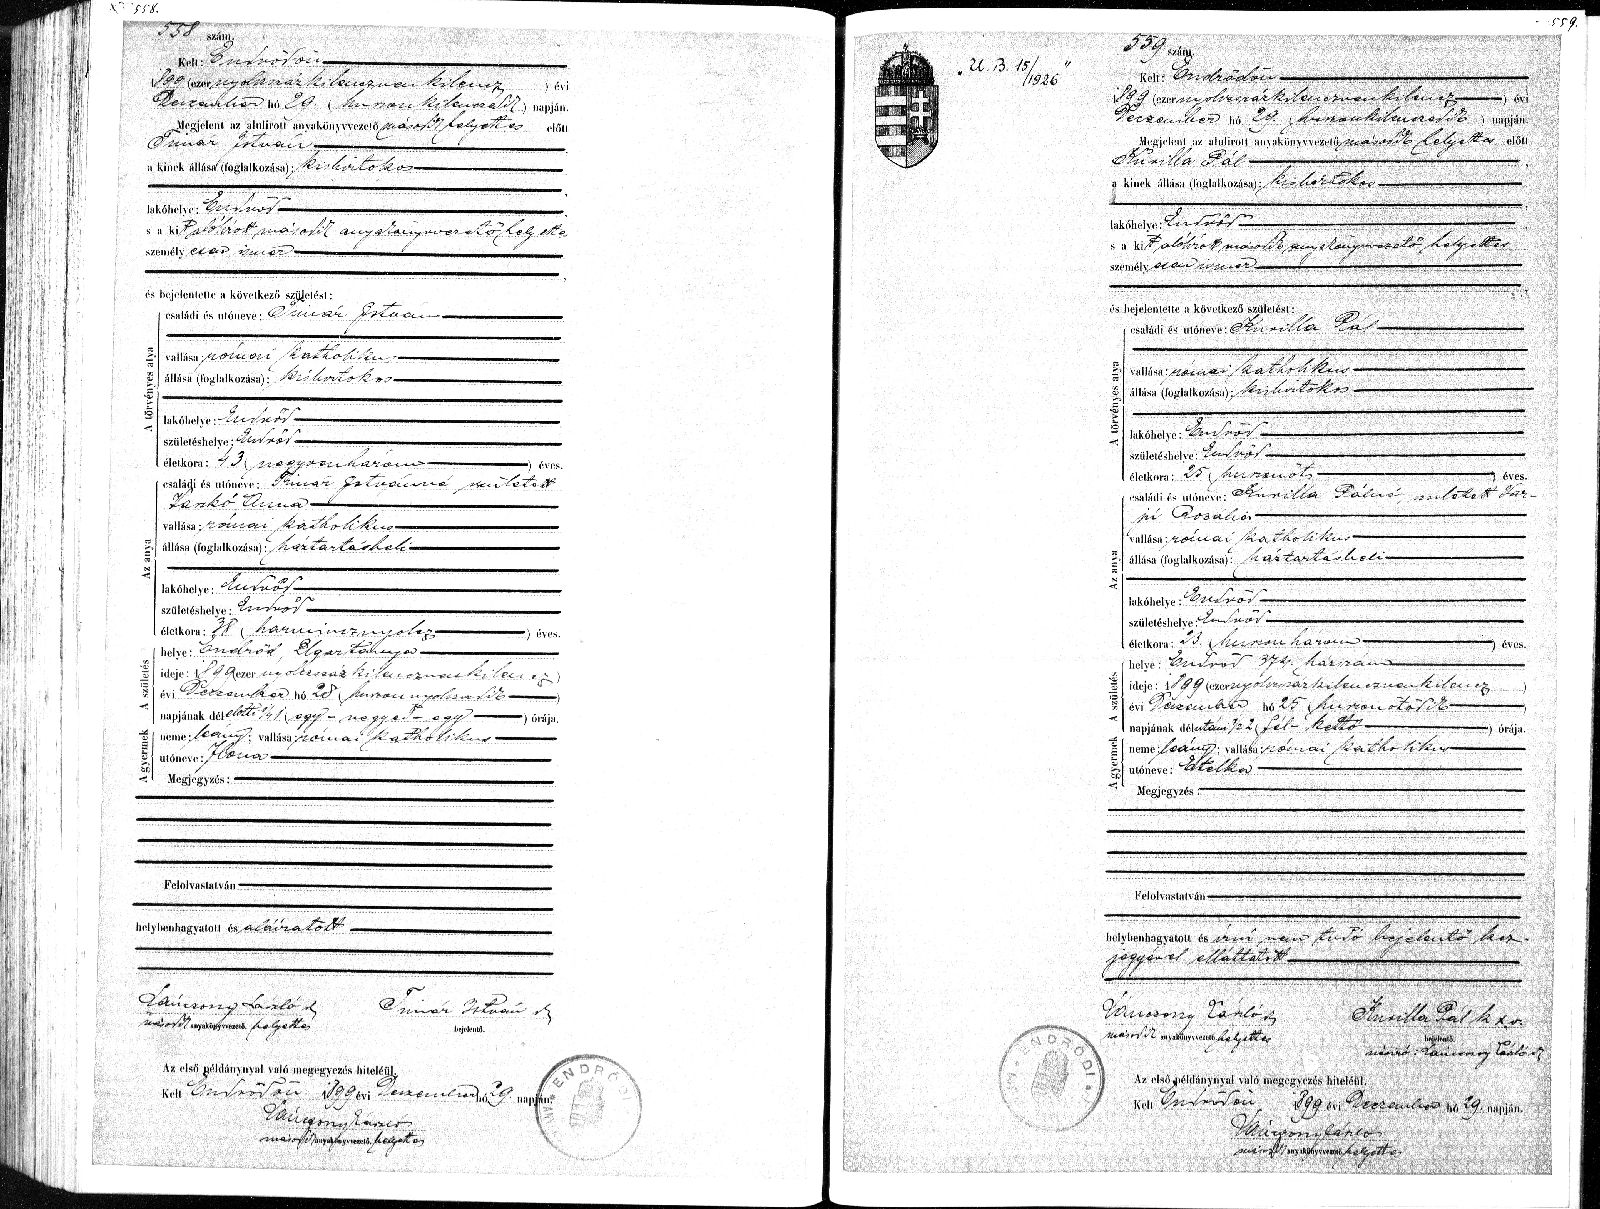 558.
558 szám.
Kelt: Endrődön
1899 (ezernyolczszázkilenczvenkilencz) évi
Deczember hó 29. (huszonkilenczedik) napján.
Megjelent az alulirott anyakönyvvezető másodk helyettes előtt
Timár István
a kinek állása (foglalkozása): kisbirtokos
lakóhelye: Endrőd
s a kit alólirott másodk anyakönyvvezető helyettes
személyesen ismer
és bejelentette a következő születést:
A törvényes atya
családi és utóneve: Timár István
vallása római katholikus
állása (foglalkozása): kisbirtokos
lakóhelye: Endrőd
születéshelye: Endrőd
életkora: 43 (negyvenhárom) éves.
Az anya
családi és utóneve: Timár Istvánné született
Jankó Anna
vallása: római katholikus
állása (foglalkozása): háztartásbeli
lakóhelye: Endrőd
születéshelye: Endrőd
életkora: 38 (harmincznyolcz) éves.
A születés
helye: Endrőd, Ugartanya
ideje: 1899 (ezer nyolczszázkilenczvenkilencz)
évi Deczember hó 28 (huszonnyolczadik)
napjának délelőtti 1/4 1 (egy-negyed-egy) órája.
A gyermek
neme: leány; vallása: római katholikus
utóneve: Ilona
Megjegyzés:
Felolvastatván
helybenhagyatott és aláiratott
Vaúcsony László
másodk anyakönyvvezető helyettes
Timár István
bejelentő.
Az első példánynyal való megegyezés hiteléül.
Kelt Endrődön 1899 évi Deczember hó 29. napján.
Vaúcsony László
másodk anyakönyvvezető helyettes
ENDRŐDI
559.
559 szám.
„U. B. 15/1926"
Kelt: Endrődön
1899 (ezernyolczszázkilenczvenkilencz) évi
Deczember hó 29. (huszonkilenczedik) napján.
Megjelent az alulirott anyakönyvvezető másodk helyettes előtt
Kurilla Pál
a kinek állása (foglalkozása): kisbirtokos
lakóhelye: Endrőd
s a kit alólirott másodk anyakönyvvezető helyettes
személyesen ismer
és bejelentette a következő születést:
A törvényes atya
családi és utóneve: Kurilla Pál
vallása: római katholikus
állása (foglalkozása): kisbirtokos
lakóhelye: Endrőd
születéshelye: Endrőd
életkora: 25 (huszonöt) éves.
Az anya
családi és utóneve: Kurilla Pálné, született
Rozália
vallása: római katholikus
állása (foglalkozása): háztartásbeli
lakóhelye: Endrőd
születéshelye: Endrőd
életkora: 23 (huszonhárom) éves.
A születés
helye: Endrőd 374. házszám
ideje: 1899 (ezernyolczszázkilenczvenkilencz)
évi Deczember hó 25 (huszonötödik)
napjának délutáni 1/2 2 (fél-kettő) órája.
A gyermek
neme: leány; vallása: római katholikus
utóneve: Etelka
Megjegyzés:
Felolvastatván
helybenhagyatott és irni nem tudó bejelentő kéz-
jegyével elláttatott
Vaúcsony László
másodk anyakönyvvezető helyettes
Kurilla Pál k x v.
bejelentő.
Vaúcsony László
Az első példánynyal való megegyezés hiteléül.
Kelt Endrődön 1899 évi Deczember hó 29. napján.
Vaúcsony László
másodk anyakönyvvezető helyettes
ENDRŐDI